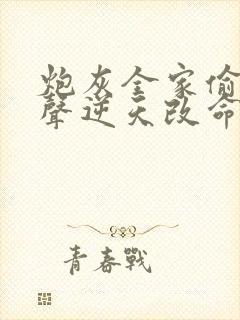 炮灰全家偷
聲逆天改命
青春戰